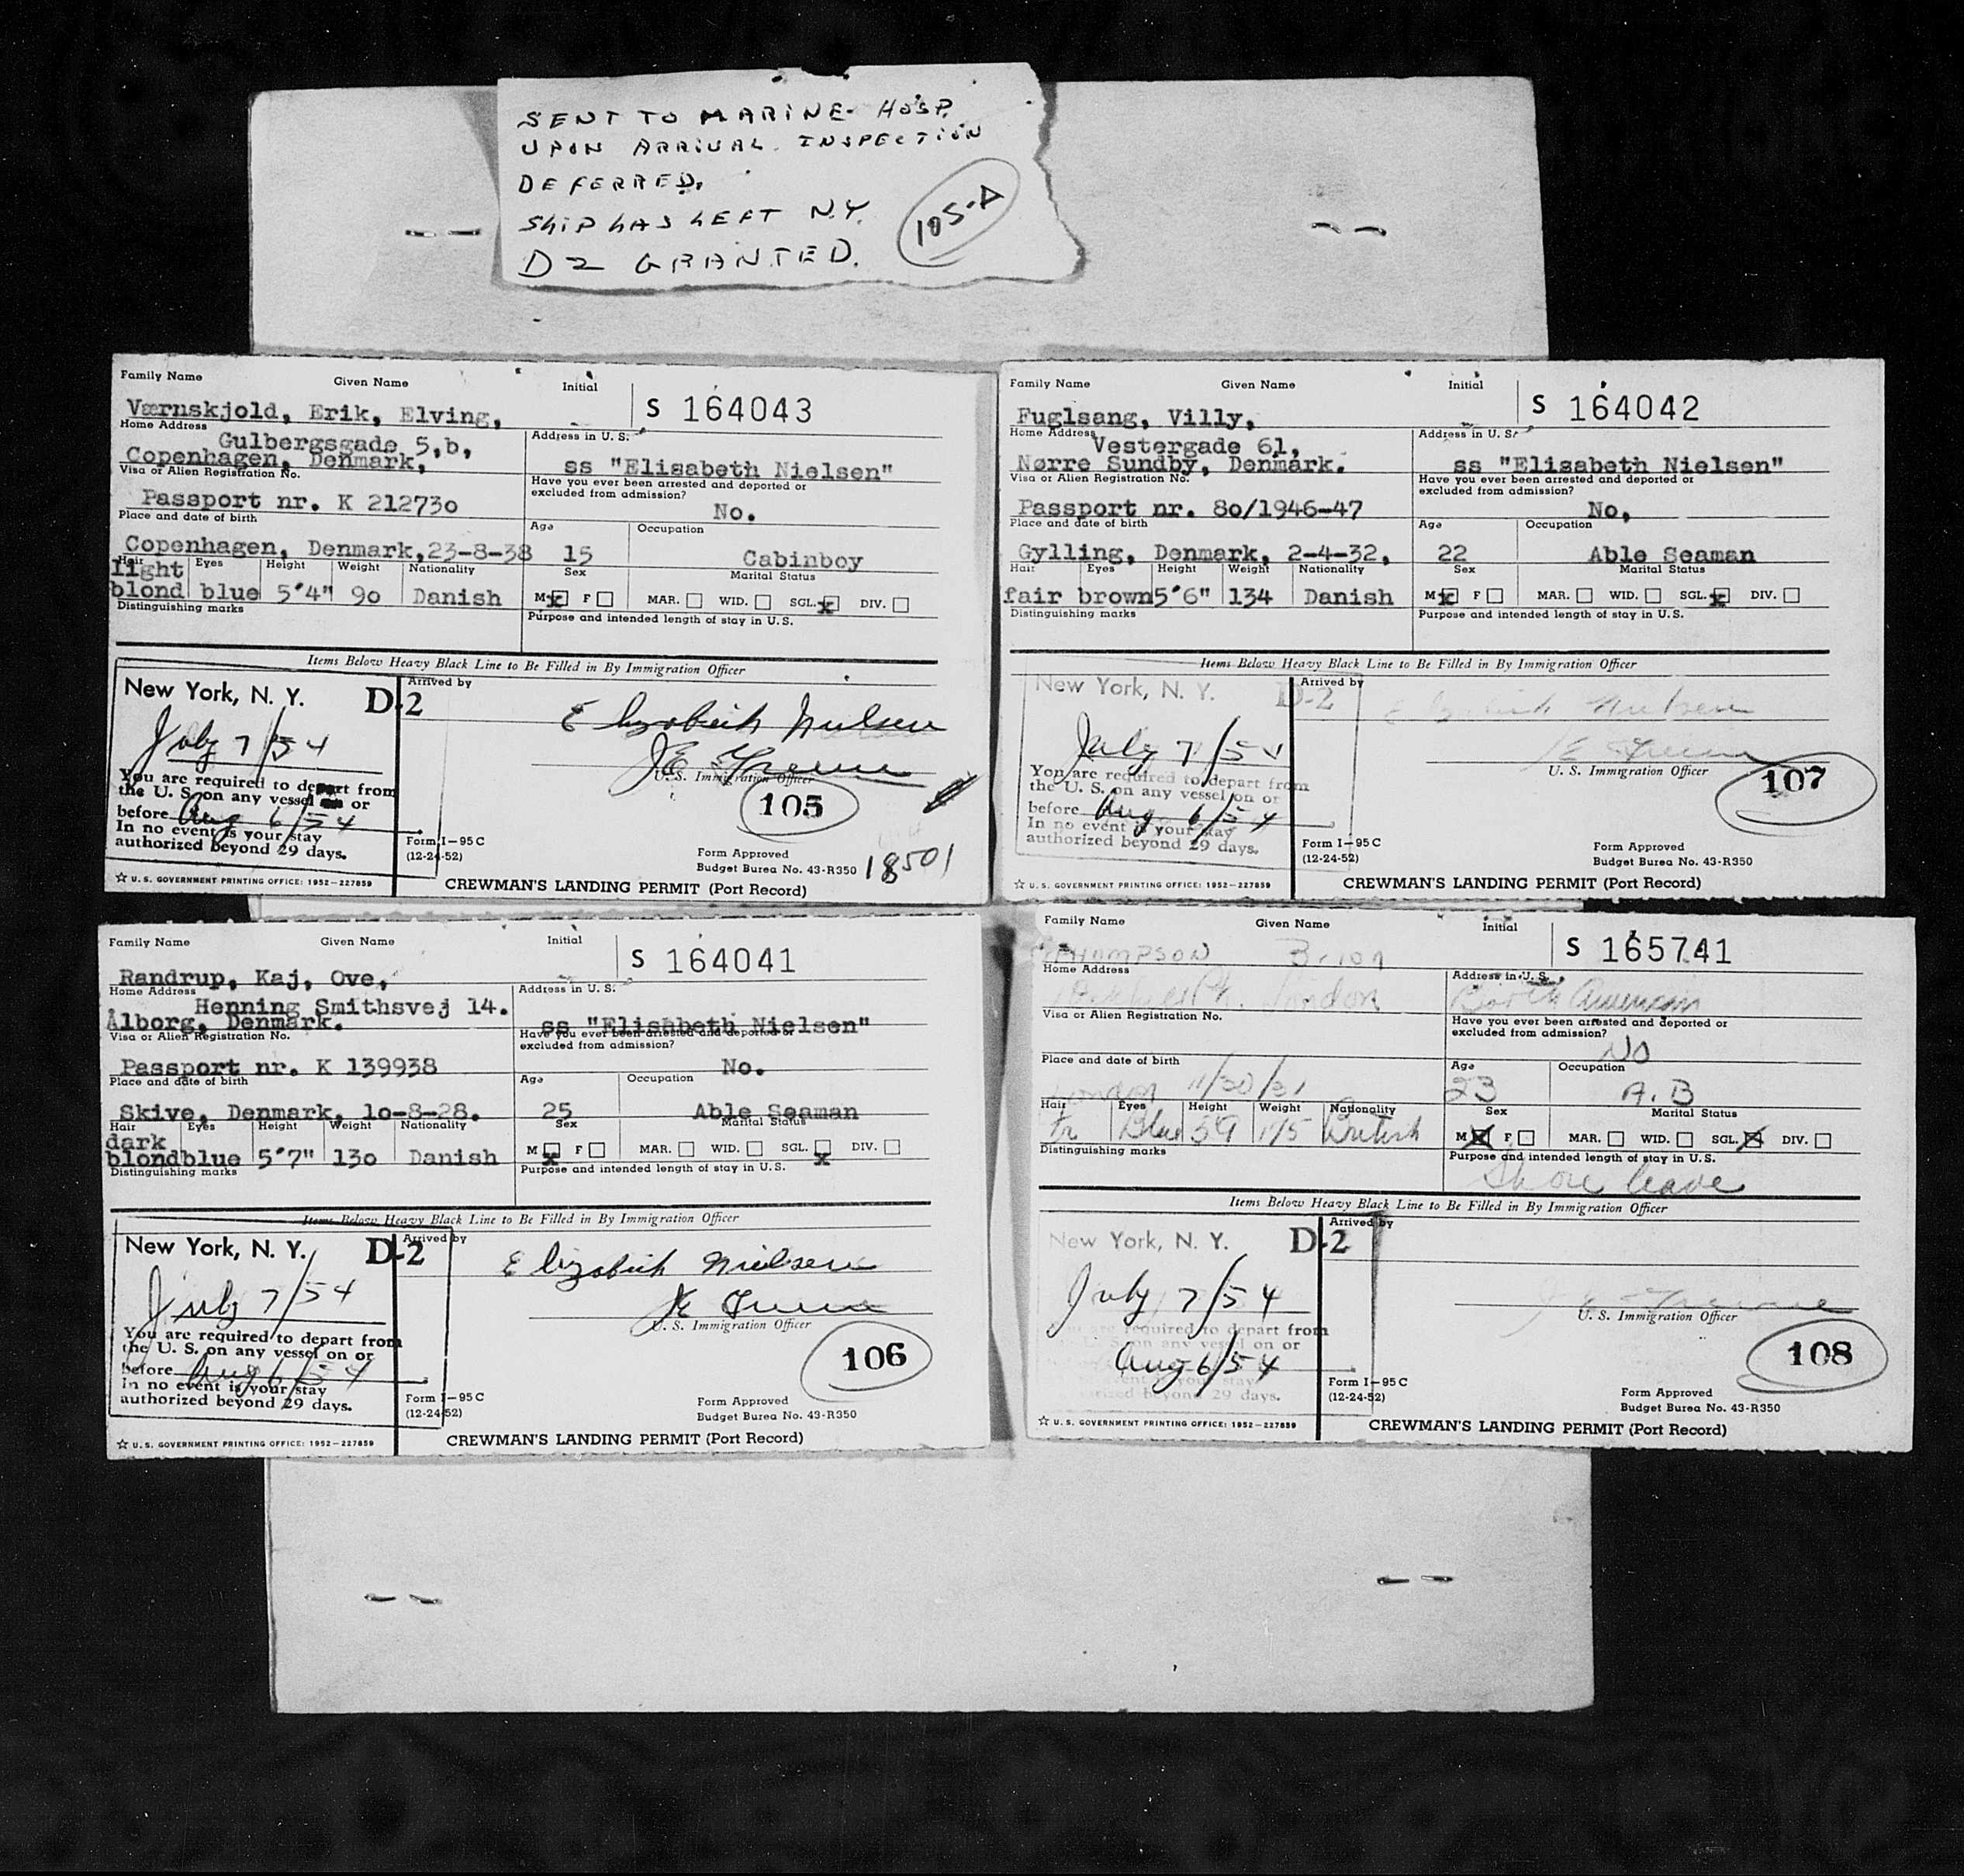 SENT TO MARINE HOSP.
UPON ARRIVAL. INSPECTION
DEFERRED.
SHIP HAS LEFT N.Y.
D2 GRANTED.
105-A
Family Name Given Name Initial
S 164043
Værnskjold, Erik, Elving,
Home Address
Gulbergsgade 5,b,
Copenhagen, Denmark,
Address in U. S.
ss "Elisabeth Nielsen"
Visa or Alien Registration No.
Have you ever been arrested and deported or
excluded from admission?
Passport nr. K 21273o
No.
Place and date of birth
Age Occupation
Copenhagen, Denmark,23-8-38 15 Cabinboy
Hair Eyes Height Weight Nationality Sex Marital Status
light
blond blue 5'4" 9o Danish M x F MAR. WID. SGL. x DIV.
Distinguishing marks
Purpose and intended length of stay in U. S.
Items Below Heavy Black Line to Be Filled in By Immigration Officer
New York, N. Y. D-2 Arrived by
Elizabeth Nielsen
July 7/54
U. S. Immigration Officer
You are required to depart from
the U. S. on any vessel on or
before Aug 6/54
In no event is your stay
authorized beyond 29 days.
105
Form I-95 C
(12-24-52)
Form Approved
Budget Burea No. 43-R350
18501
☆ U. S. GOVERNMENT PRINTING OFFICE: 1952-227859
CREWMAN'S LANDING PERMIT (Port Record)
Family Name Given Name Initial
S 164042
Fuglsang, Villy,
Home Address
Vestergade 61,
Nørre Sundby, Denmark.
Address in U. S.
ss "Elisabeth Nielsen"
Visa or Alien Registration No.
Have you ever been arrested and deported or
excluded from admission?
Passport nr. 8o/1946-47
No,
Place and date of birth
Age Occupation
Gylling, Denmark, 2-4-32, 22 Able Seaman
Hair Eyes Height Weight Nationality Sex Marital Status
fair brown 5'6" 134 Danish M x F MAR. WID. SGL. x DIV.
Distinguishing marks
Purpose and intended length of stay in U. S.
Items Below Heavy Black Line to Be Filled in By Immigration Officer
New York, N. Y. D-2 Arrived by
Elizabeth Nielsen
July 7/54
U. S. Immigration Officer
You are required to depart from
the U. S. on any vessel on or
before Aug 6/54
In no event is your stay
authorized beyond 29 days.
107
Form I-95 C
(12-24-52)
Form Approved
Budget Burea No. 43-R350
☆ U. S. GOVERNMENT PRINTING OFFICE: 1952-227859
CREWMAN'S LANDING PERMIT (Port Record)
Family Name Given Name Initial
S 164041
Randrup, Kaj, Ove,
Home Address
Henning Smithsvej 14.
Ålborg, Denmark.
Address in U. S.
ss "Elisabeth Nielsen"
Visa or Alien Registration No.
Have you ever been arrested and deported or
excluded from admission?
Passport nr. K 139938
No.
Place and date of birth
Age Occupation
Skive, Denmark, lo-8-28. 25 Able Seaman
Hair Eyes Height Weight Nationality Sex Marital Status
dark
blond blue 5'7" 13o Danish M x F MAR. WID. SGL. x DIV.
Distinguishing marks
Purpose and intended length of stay in U. S.
Items Below Heavy Black Line to Be Filled in By Immigration Officer
New York, N. Y. D-2 Arrived by
Elizabeth Nielsen
July 7/54
U. S. Immigration Officer
You are required to depart from
the U. S. on any vessel on or
before Aug 6/54
In no event is your stay
authorized beyond 29 days.
106
Form I-95 C
(12-24-52)
Form Approved
Budget Burea No. 43-R350
☆ U. S. GOVERNMENT PRINTING OFFICE: 1952-227859
CREWMAN'S LANDING PERMIT (Port Record)
Family Name Given Name Initial
S 165741
THOMPSON Brian
Home Address
London
Address in U. S.
American
Visa or Alien Registration No.
Have you ever been arrested and deported or
excluded from admission?
No
Place and date of birth
Age Occupation
London 11/30/31 23 A.B
Hair Eyes Height Weight Nationality Sex Marital Status
Blue 59 175 British M X F MAR. WID. SGL. X DIV.
Distinguishing marks
Purpose and intended length of stay in U. S.
Shore leave
Items Below Heavy Black Line to Be Filled in By Immigration Officer
New York, N. Y. D-2 Arrived by
July 7/54
U. S. Immigration Officer
required to depart from
on any vessel on or
Aug 6/54
event is your stay
authorized beyond 29 days.
108
Form I-95 C
(12-24-52)
Form Approved
Budget Burea No. 43-R350
☆ U. S. GOVERNMENT PRINTING OFFICE: 1952-227859
CREWMAN'S LANDING PERMIT (Port Record)